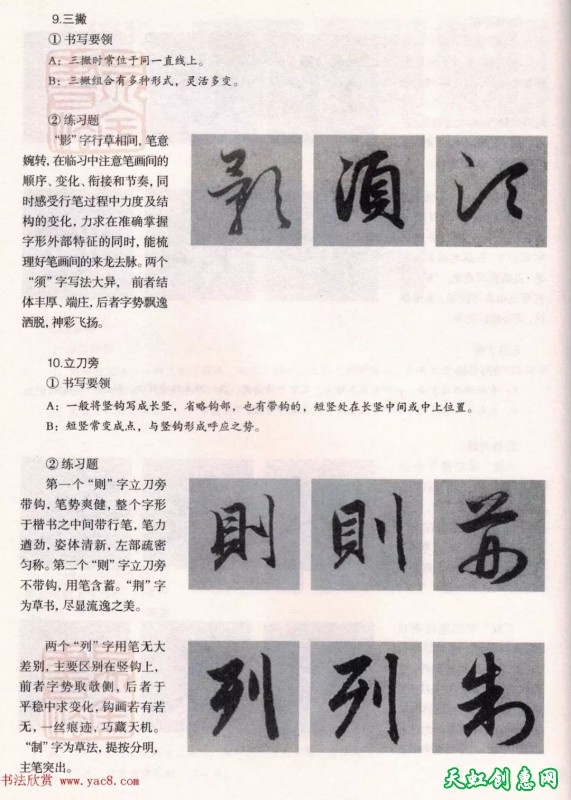 9.三撇
① 书写要领
A：三撇时常位于同一直线上。
B：三撇组合有多种形式，灵活多变。
② 练习题
“影”字行草相间，笔意
婉转，在临习中注意笔画间的
顺序、变化、衔接和节奏，同
时感受行笔过程中力度及结
构的变化，力求在准确掌握
字形外部特征的同时，能梳
理好笔画间的来龙去脉。两个
“须”字写法大异， 前者结
体丰厚、端庄，后者字势飘逸
洒脱，神彩飞扬。
影 須 须
10.立刀旁
① 书写要领
A：一般将竖钩写成长竖，省略钩部，也有带钩的，短竖处在长竖中间或中上位置。
B：短竖常变成点，与竖钩形成呼应之势。
② 练习题
第一个“则”字立刀旁
带钩，笔势爽健，整个字形
于楷书之中间带行笔，笔力
遒劲，姿体清新，左部疏密
匀称。第二个“则”字立刀旁
不带钩，用笔含蓄。“荆”字
为草书，尽显流逸之美。
則 則 荆
两个“列”字用笔无大
差别，主要区别在竖钩上，
前者字势取欹侧，后者于
平稳中求变化，钩画若有若
无，一丝痕迹，巧藏天机。
“制”字为草法，提按分明，
主笔突出。
列 列 制
书法欣赏 www.yac8.com
天虹创意网